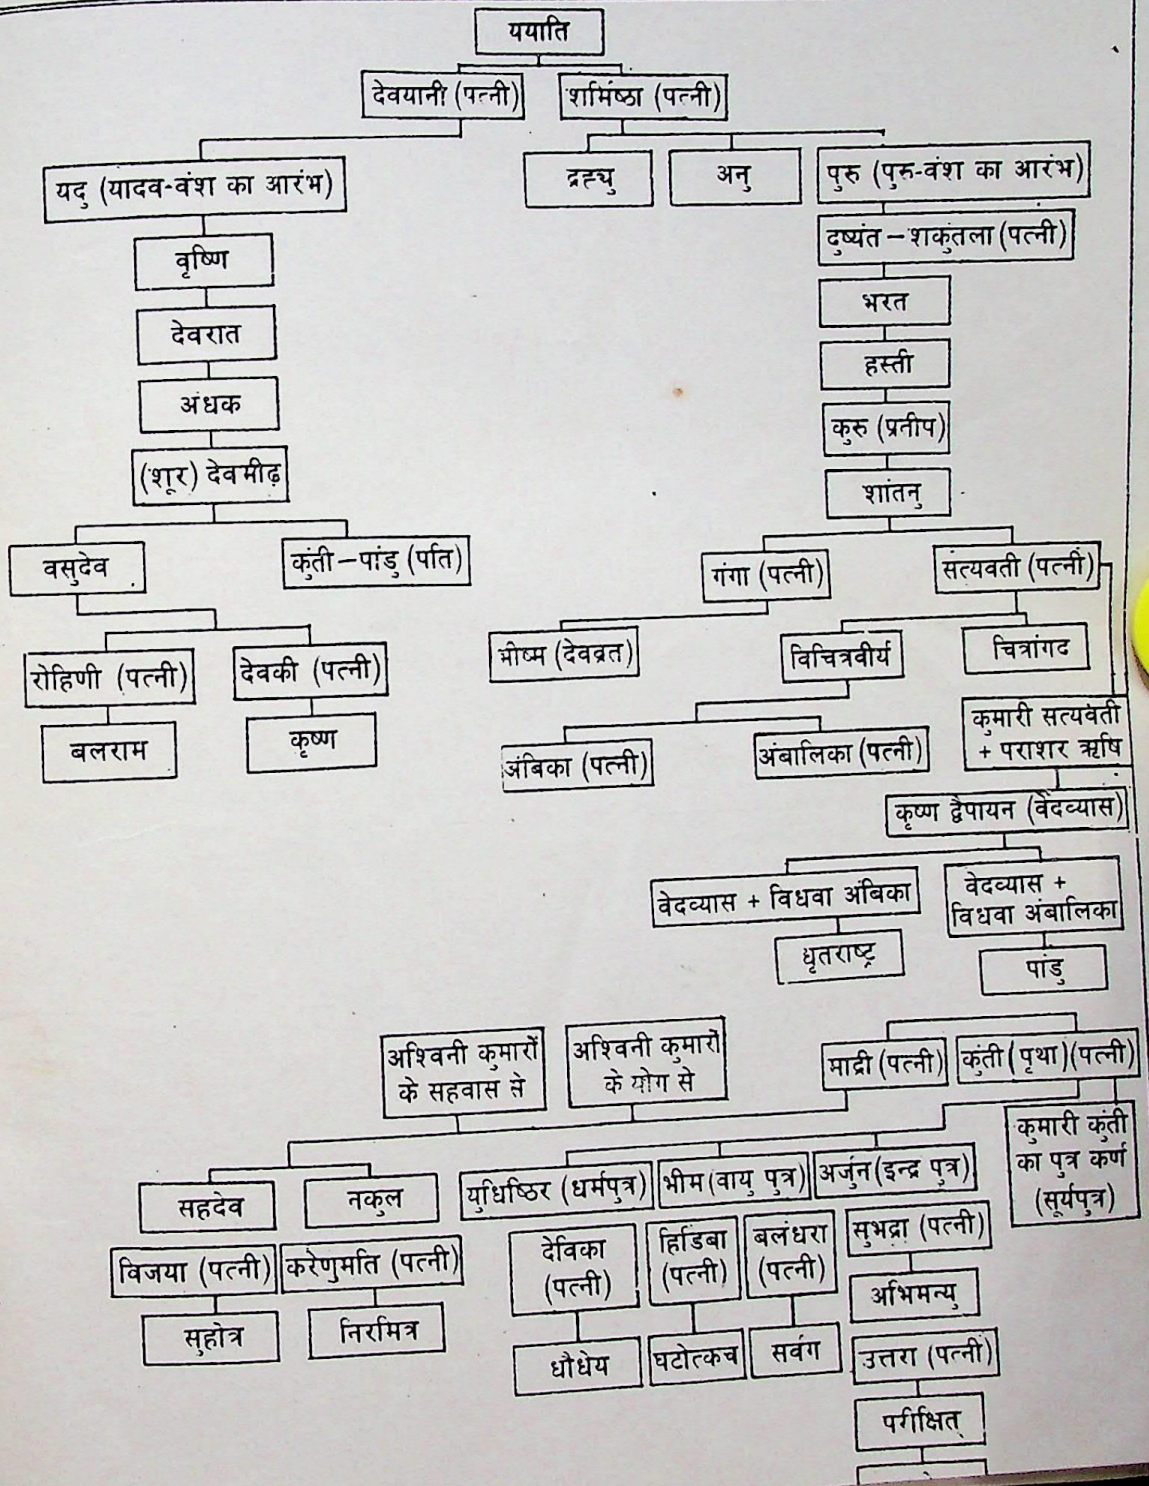 ययाति
देवयानी (पत्नी) शर्मिष्ठा (पत्नी)
यदु (यादव-वंश का आरंभ) द्रह्यु अनु पुरु (पुरु-वंश का आरंभ)
वृष्णि दुष्यंत – शकुंतला (पत्नी)
देवरात भरत
अंधक हस्ती
कुरु (प्रतीप)
(शूर) देवमीढ़ शांतनु
वसुदेव कुंती – पांडु (पति) गंगा (पत्नी) सत्यवती (पत्नी)
रोहिणी (पत्नी) देवकी (पत्नी) भीष्म (देवव्रत) विचित्रवीर्य चित्रांगद
बलराम कृष्ण अंबिका (पत्नी) अंबालिका (पत्नी) कुमारी सत्यवती
+ पराशर ऋषि
कृष्ण द्वैपायन (वेदव्यास)
वेदव्यास + विधवा अंबिका वेदव्यास +
विधवा अंबालिका
धृतराष्ट्र पांडु
अश्विनी कुमारों
के सहवास से
अश्विनी कुमारों
के योग से
माद्री (पत्नी) कुंती (पृथा) (पत्नी)
कुमारी कुंती
का पुत्र कर्ण
(सूर्यपुत्र)
सहदेव नकुल युधिष्ठिर (धर्मपुत्र) भीम (वायु पुत्र) अर्जुन (इन्द्र पुत्र)
विजया (पत्नी) करेणुमति (पत्नी)
देविका
(पत्नी)
हिडिंबा
(पत्नी)
बलंधरा
(पत्नी)
सुभद्रा (पत्नी)
अभिमन्यु
सुहोत्र निरमित्र धौधेय घटोत्कच सर्वग उत्तरा (पत्नी)
परीक्षित्